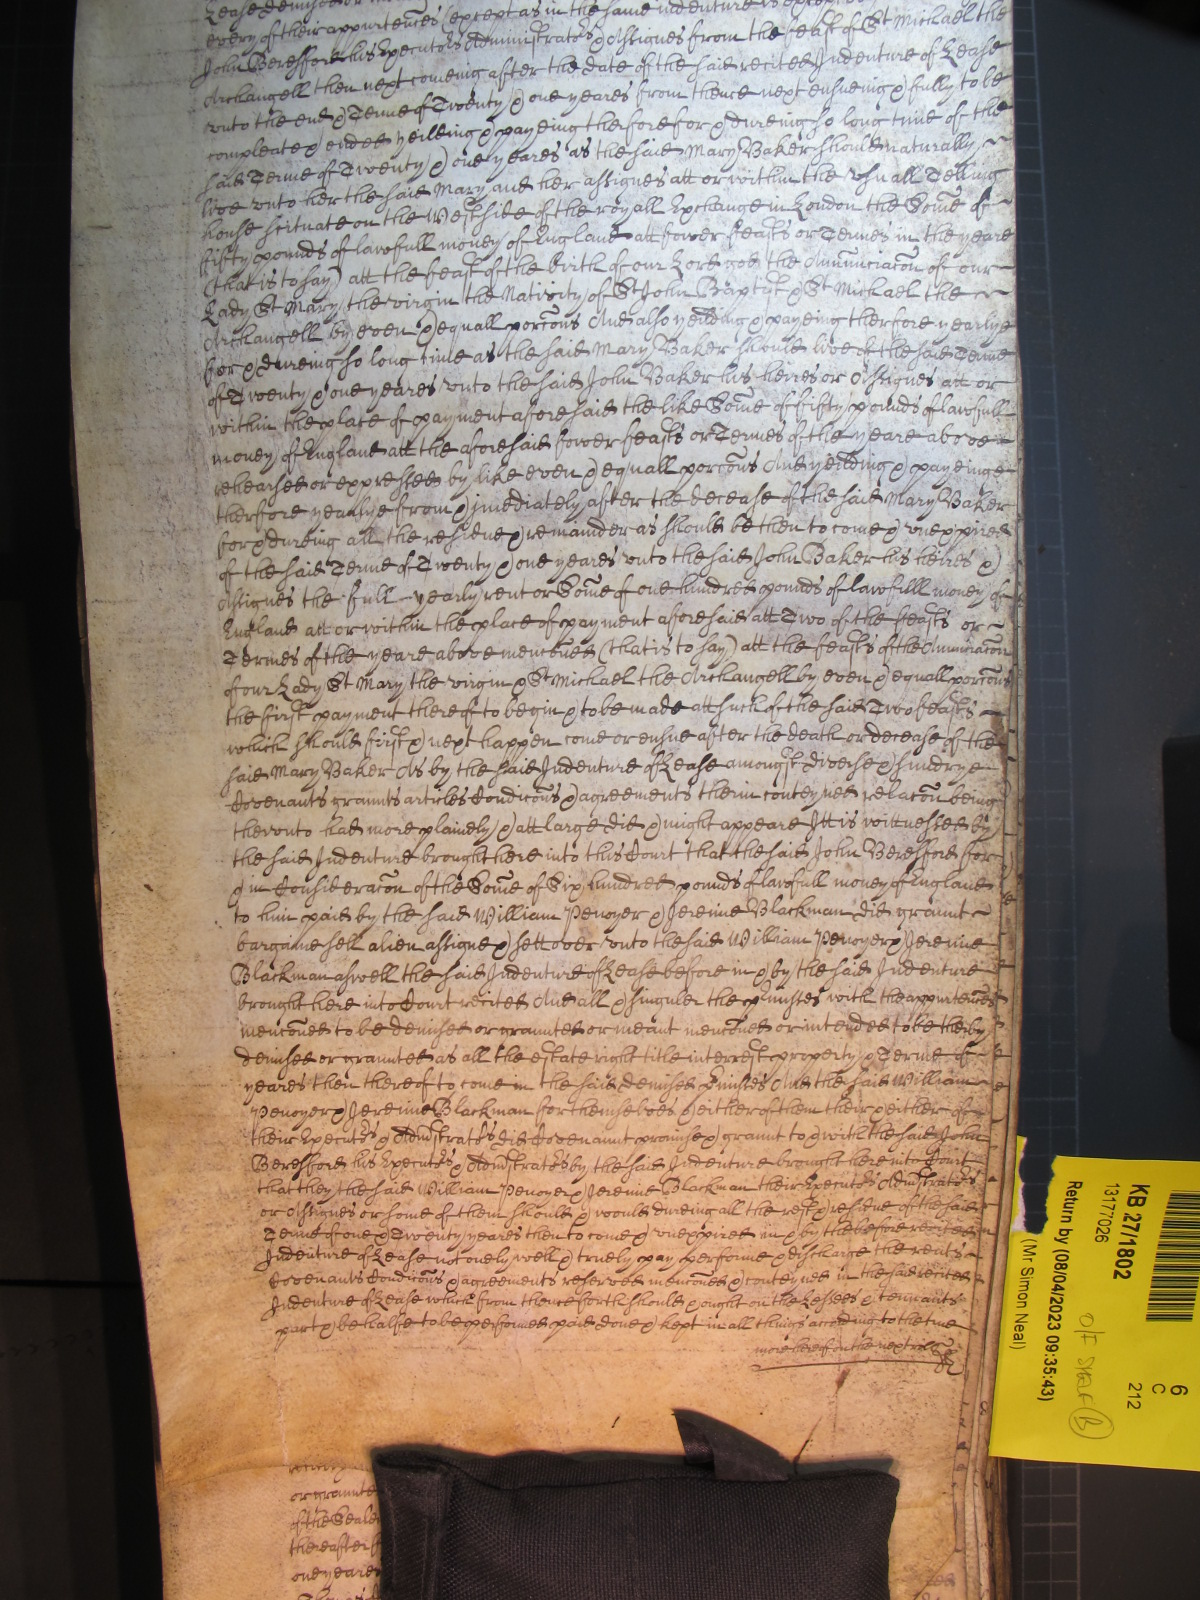 every of their appurtences (except as in the same Indenture is except
John Beresford his Executors Administrators & Assignes from the feast of St Michaell the
Archangell then next comeing after the date of the said recited Indenture of Lease
vnto the end & Terme of Twenty & one yeares from thence next ensueing & fully to be
compleate & ended yeilding & payeing therefore for & dureing so long time of the
said Terme of Twenty & one yeares as the said Mary Baker should naturally
live vnto her the said Mary and her assignes att or within the vsuall Telling
house scituate on the West side of the royall Exchange in London the Some of
fifty pounds of lawfull money of England att fower feasts or Termes in the yeare
(that is to say) att the feast of the Birth of our Lord god the Annunciacon of our
Lady St Mary the virgin the Nativity of St John Baptist & St Michael the
Archangell by even & equall porcons And also yeilding & payeing therfore yearlye
for & dureing so long time as the said Mary Baker should live of the said Terme
of Twenty & one yeares vnto the said John Baker his heires or Assignes att or
within the place of payment aforesaid the like Some of fifty pounds of lawfull
money of England att the aforesaid fower feasts or Termes of the yeare above
rehearsed or expressed by like even & equall porcons And yeilding & payeinge
therfore yearlye from & imediately after the decease of the said Mary Baker
for & dureing all the residue & remainder as should be then to come & vnexpired
of the said Terme of Twenty & one yeares vnto the said John Baker his heires &
Assignes the full yearly rent or Some of one hundred pounds of lawfull money of
England att or within the place of payment aforesaid att Two of the feasts or
Termes of the yeare above menconed (that is to say) att the feasts of the Annunciacon
of our Lady St Mary the virgin & St Michael the Archangell by even & equall porcons
the first payment thereof to begin & to be made att such of the said Two feasts
which should first & next happen come or ensue after the death or decease of the
said Mary Baker As by the said Indenture of Lease amongst diverse & sundrye
Covenants graunts articles Condicons & agreements therin conteyned relacon being
thervnto had more plainely & att large did & might appeare Itt is wittnessed by
the said Indenture brought here into this Court that the said John Beresford for
& in Consideracon of the Some of Six hundred pounds of lawfull money of England
to him paid by the said William Penoyer & Jeremie Blackman did graunt
bargaine sell alien assigne & sett over vnto the said William Penoyer & Jeremie
Blackman aswell the said Indenture of Lease before in & by the said Indenture
brought here into Court recited And all & singuler the pmisses with theappurtences
menconed to be demised or graunted or meant menconed or intended to be therby
demised or graunted as all the estate right title interrest property & Terme of
yeares then thereof to come in the said demised pmisses And the said William
Penoyer & Jeremie Blackman for themselves & either of them their & either of
their Executors & Administrators did Covenannt promise & graunt to & with the said John
Beresford his Executors & Administrators by the said Indenture brought here into Court
that they the said William Penoyer & Jeremie Blackman their Executors Administrators
or Assignes or some of them should & would dureing all the rest & residue of the said
Terme of one & Twenty yeares then to come & vnexpired in & by the before recited
Indenture of Lease not onely well & truely pay performe & discharge the rents
Covenants Condicons & agreements reserved menconed & conteyned in the said recited
Indenture of Lease which from thence forth should & ought on the Lessees & tennants
part & behalfe to be performed paid done & kept in all things according to the true
more hereof on the next roll
or graunte
of the Seale
thereafter f
one yeares
KB 27/1802
13177026
Return by (08/04/2023 09:35:43)
(Mr Simon Neal)
O/F SHELF B
6
C
212